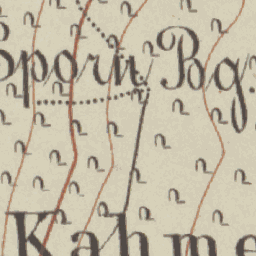 Sporn Bg.
Kahme